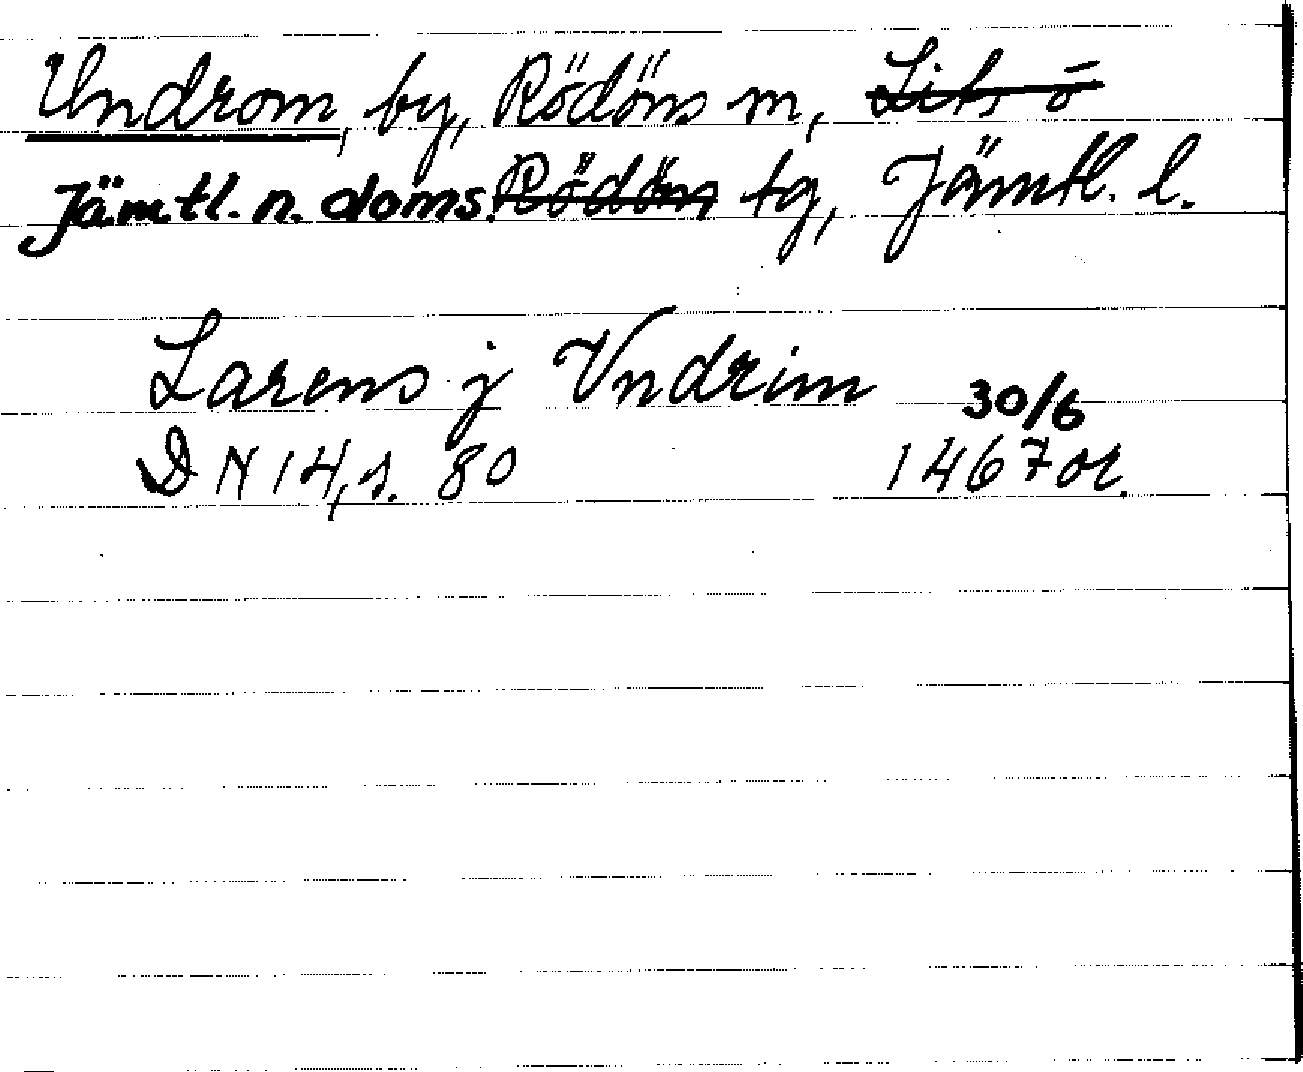 Undrom, by, Rödöns m, Lits ö
Jämtl. n. doms. Rödöns tg, Jämtl. l.
Larens j Vndrim
30/6
DN 14, s. 80 1467 or.